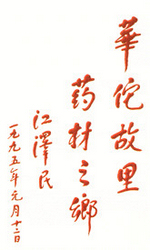 華佗故里
药材之鄉
江泽民
一九九五年元月十二日